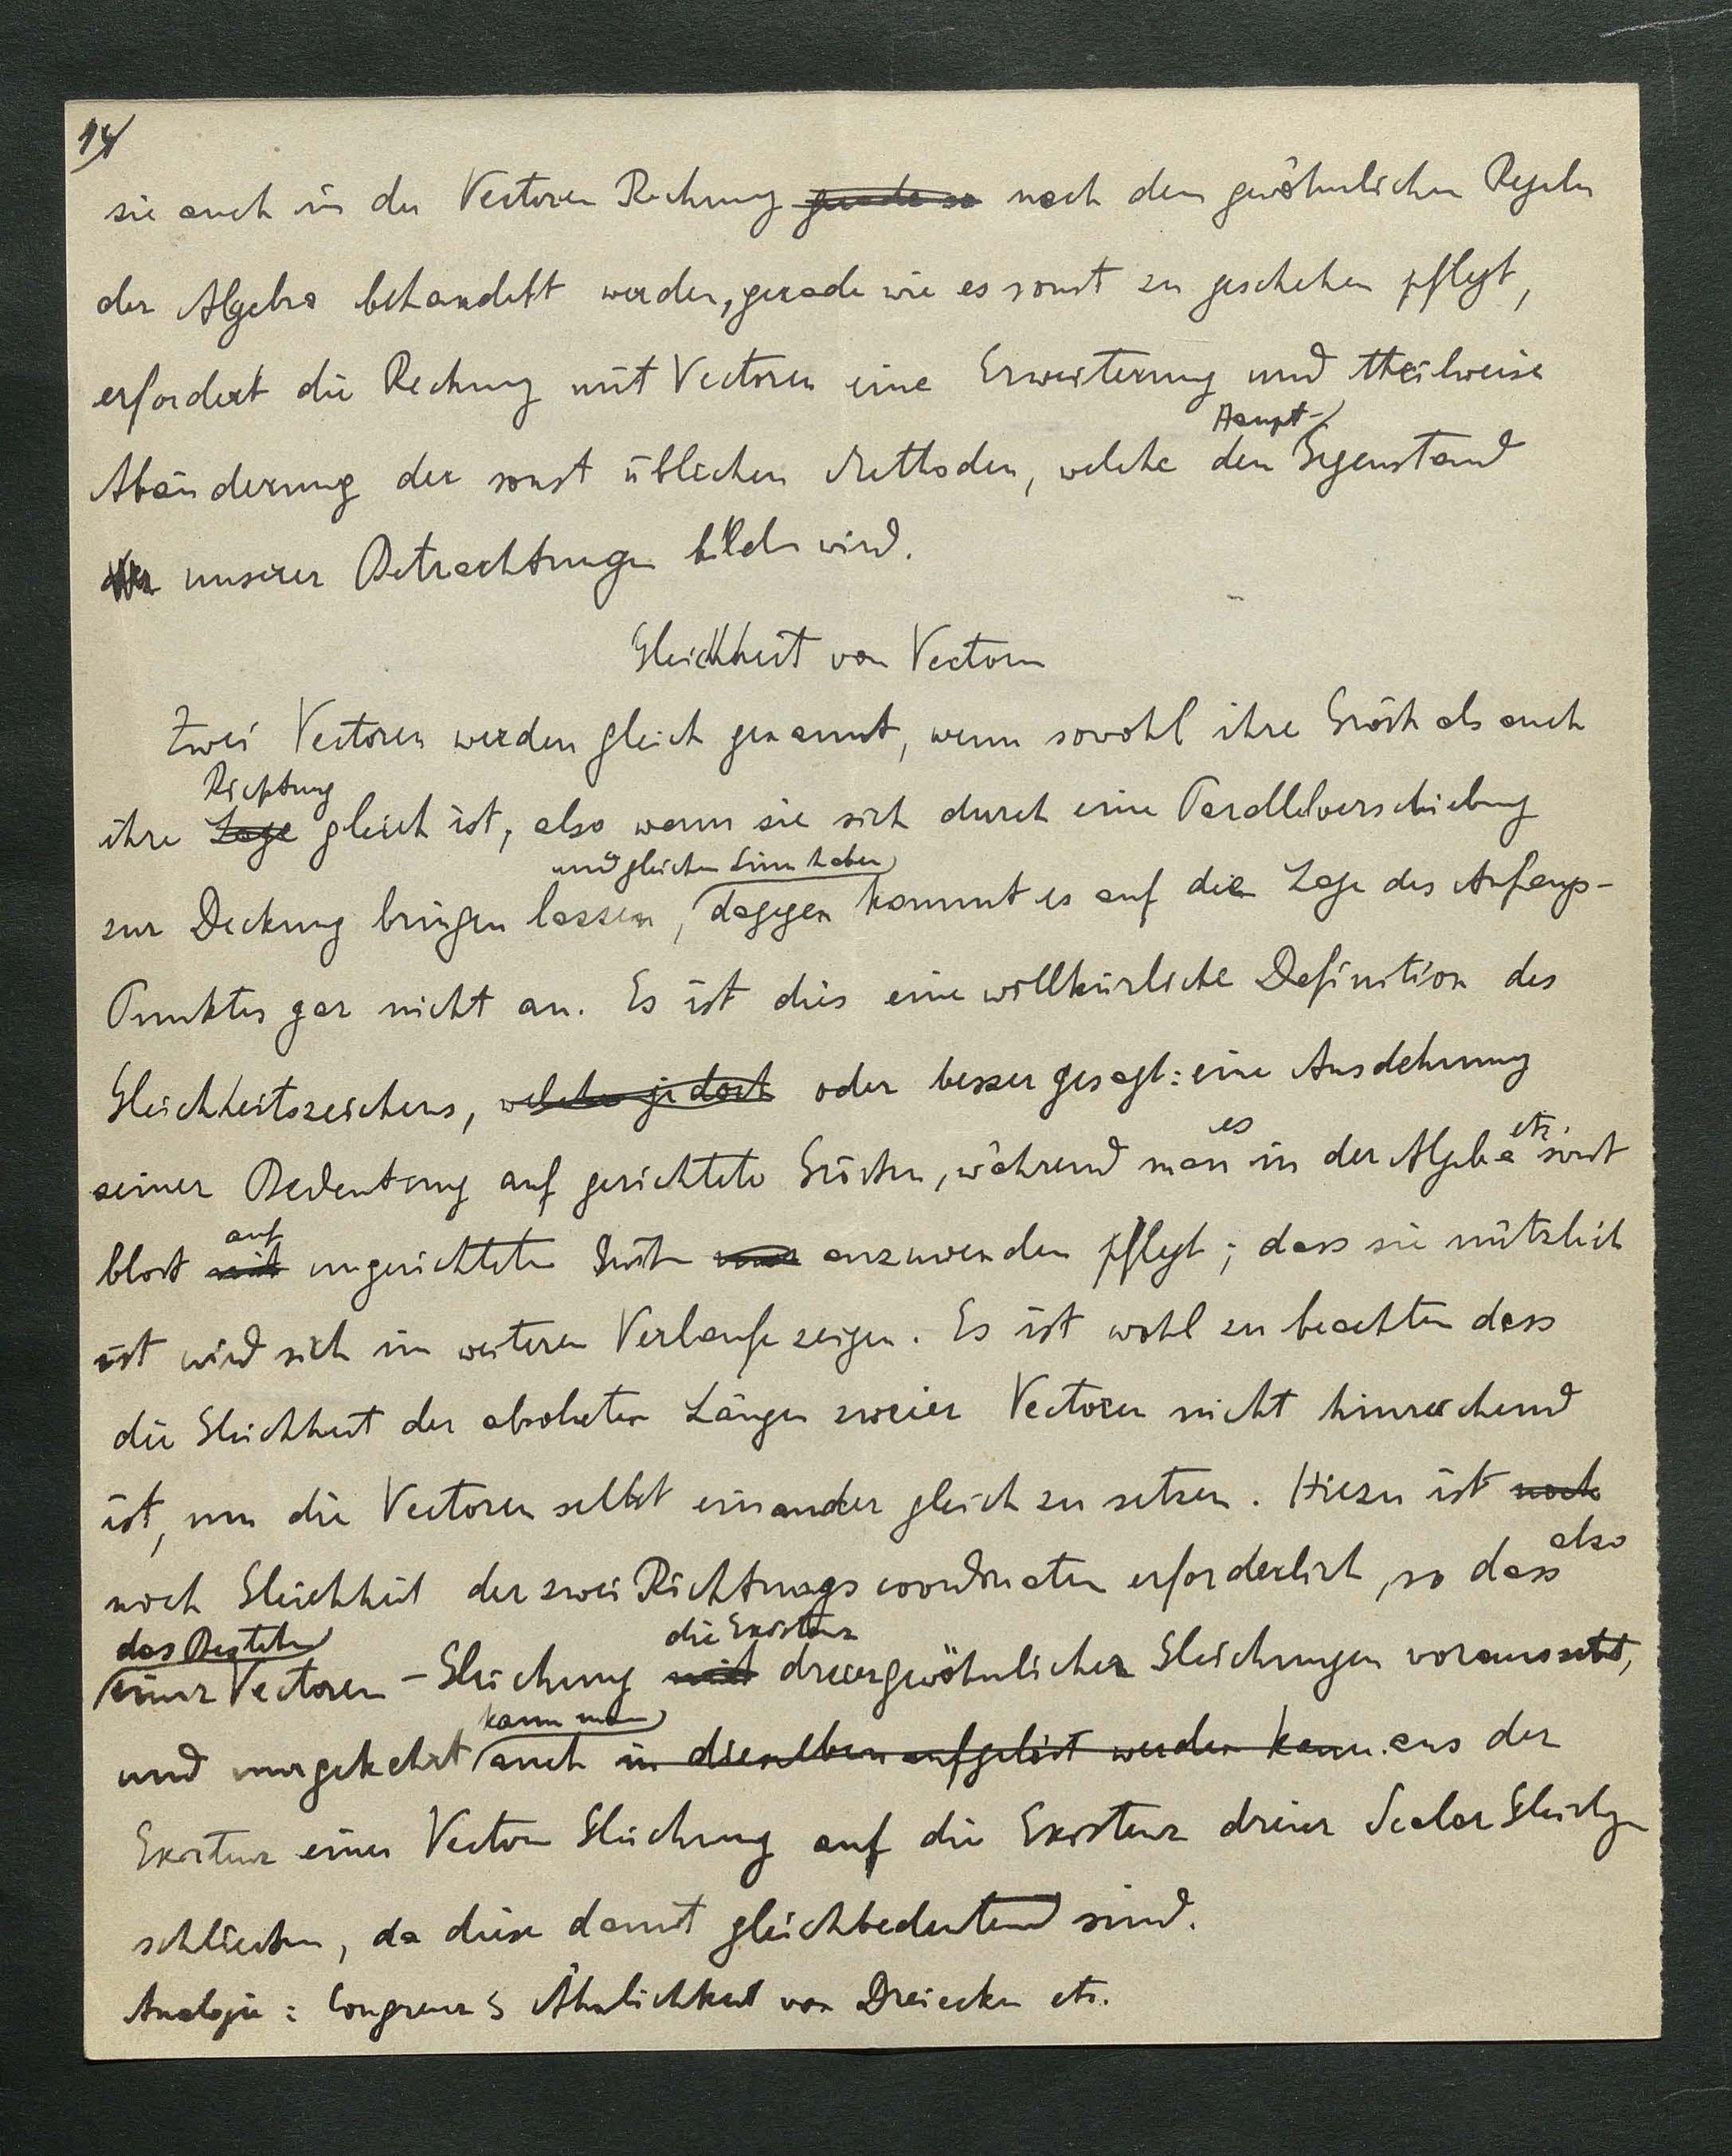 14/
sie auch in der Vectoren Rechnung gerade so nach den gewöhnlichen Regeln
der Algebra behandelt werden, gerade wie es sonst zu geschehen pflegt,
erfordert die Rechnung mit Vectoren eine Erweiterung und theilweise
Haupt-
Abänderung der sonst üblichen Methoden, welche den Gegenstand
unserer Betrachtungen bilden wird.
Gleichheit von Vectoren
Zwei Vectoren werden gleich genannt, wenn sowohl ihre Grösse als auch
Richtung
ihre Lage gleich ist, also wenn sie sich durch eine Parallelverschiebung
und gleichen Sinn haben
zur Deckung bringen lassen, dagegen kommt es auf die Lage des Anfangs-
Punktes gar nicht an. Es ist dies eine willkürliche Definition des
Gleichheitszeichens, welche jedoch oder besser gesagt: eine Ausdehnung
es etc.
seiner Bedeutung auf gerichtete Grössen, während man in der Algebra sonst
auf
bloss mit ungerichtete Grössen anzuwenden pflegt; dass sie nützlich
ist wird sich im weiteren Verlaufe zeigen. Es ist wohl zu beachten dass
die Gleichheit der absoluten Längen zweier Vectoren nicht hinreichend
ist, um die Vectoren selbst einander gleich zu setzen. Hiezu ist noch
also
noch Gleichheit der zwei Richtungscoordinaten erforderlich, so dass
das Bestehen die Existenz
einer Vectoren-Gleichung mit dreier gewöhnlicher Gleichungen voraussetzt,
kann man
und umgekehrt auch in dieselben aufgelöst werden kann. aus der
Existenz einer Vectoren Gleichung auf die Existenz dreier Scalar Gleichgn
schliessen, da diese damit gleichbedeutend sind.
Analogie: Congruenz Ähnlichkeit von Dreiecken etc.